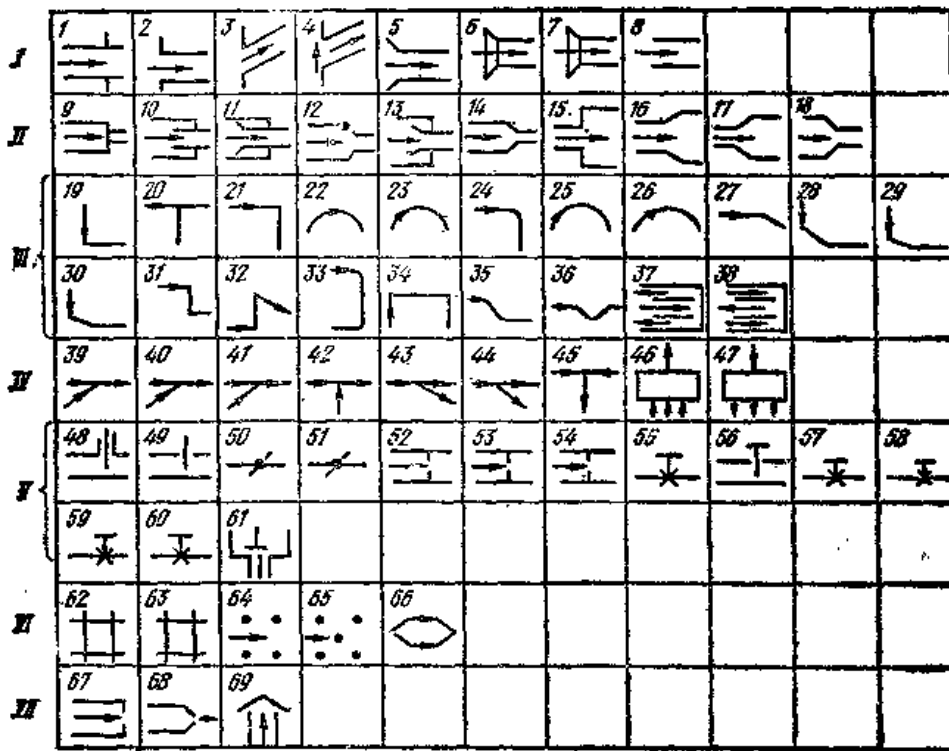 I 1 2 3 4 5 6 7 8
II 9 10 11 12 13 14 15 16 17 18
III 19 20 21 22 23 24 25 26 27 28 29
30 31 32 33 34 35 36 37 38
IV 39 40 41 42 43 44 45 46 47
V 48 49 50 51 52 53 54 55 56 57 58
59 60 61
VI 62 63 64 65 66
VII 67 68 69